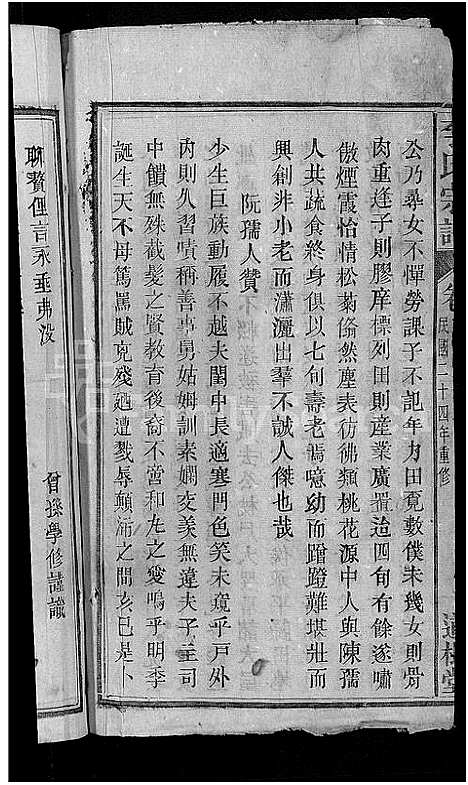 李氏宗譜
卷
民國二十四年重修
公乃尋女不憚勞課子不記年力田竟數僕未幾女則骨
肉重逢子則膠庠標列田則産業廣置迨四旬有餘遂嘯
傲煙霞怡情松菊翛然塵表彷彿類桃花源中人與陳孺
人共蔬食終身俱以七旬壽老偈噫幼而蹭蹬難堪壯而
興創非小老而瀟灑出羣不誠人傑也哉
阮孺人贊
少生巨族動履不越夫閨中長適寒門色笑未窺乎戶外
內則久習嘖稱善事舅姑姆訓素嫻交羨無違夫子主司
中饋無殊截髮之賢教育後裔不啻和丸之叟嗚乎明季
誕生天不毋篤罵賊克殘廼遭戮辱顛沛之間亥巳是卜
聊贅俚言永垂弗没
曾孫學修謹識